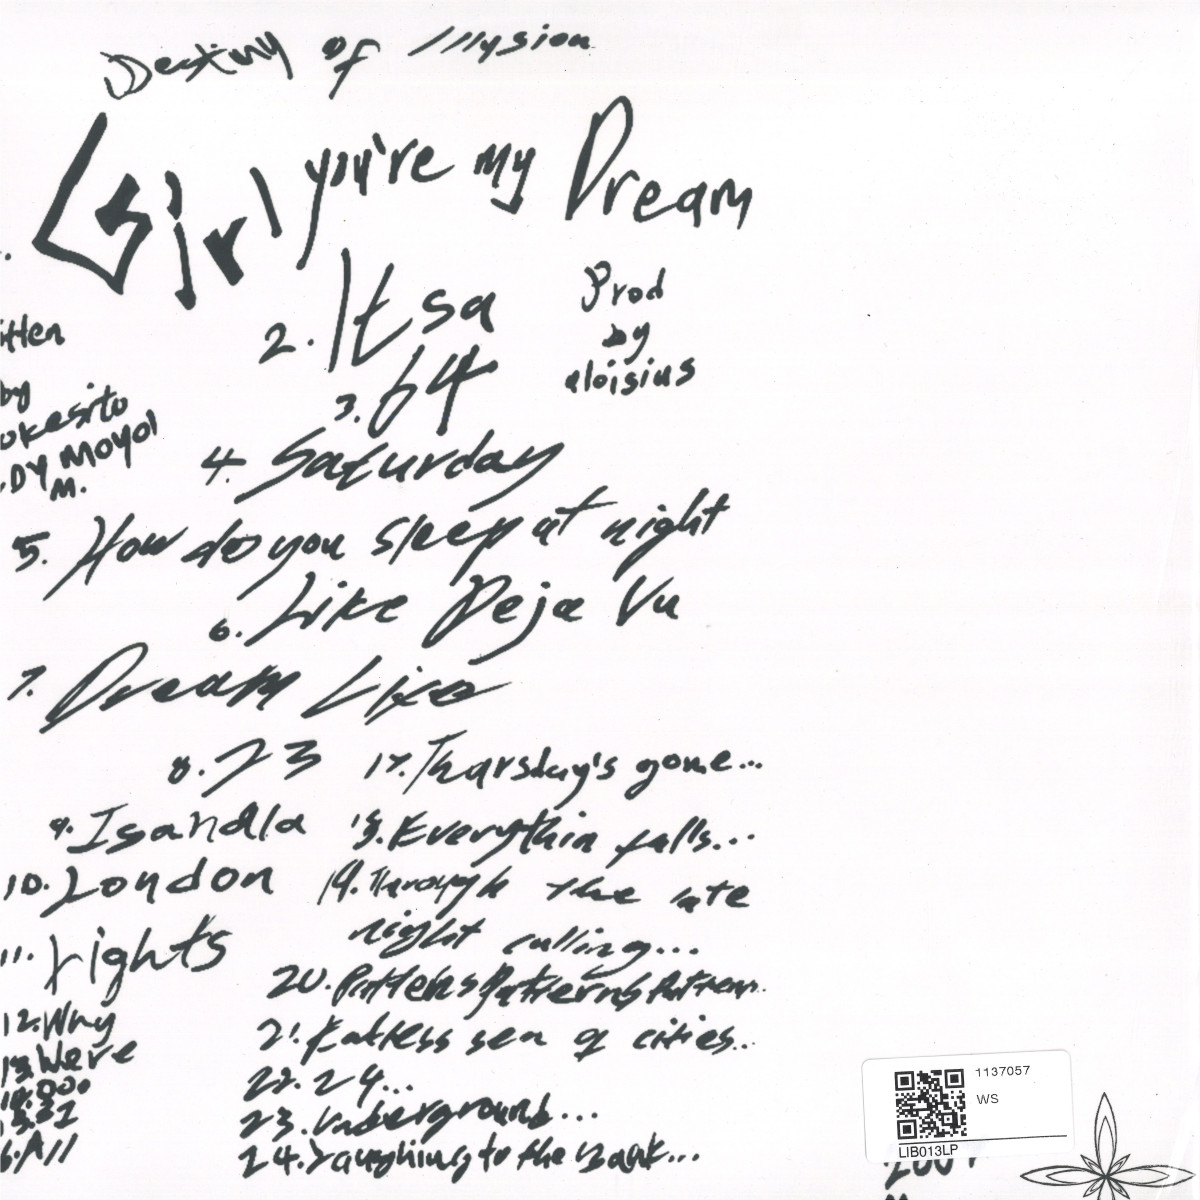 Destiny of Illusion
Girl you're my Dream
2. Itsa
Prod
by
aloisius
itten
by
okesito
.DY Moyo
M.
3. 64
4. Saturday
5. How do you sleep at night
6. Like Deja Vu
7. Dream Like
8. 23
9. Isandla
10. London
11. Lights
12. Why
13. Were
14. 000
15. 21
6. All
17. Tharsday's gone...
18. Everythin falls...
19. Through the late
night calling...
20. Patterns Patterns Pattern..
21. Fateless sea of cities..
22. 24...
23. Underground...
24. Laughing to the Bank...
1137057
WS
LIB013LP